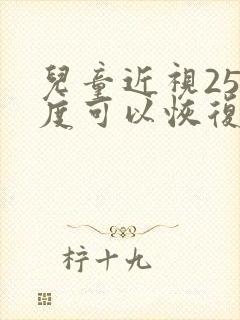 兒童近視25
度可以恢復
柠十九